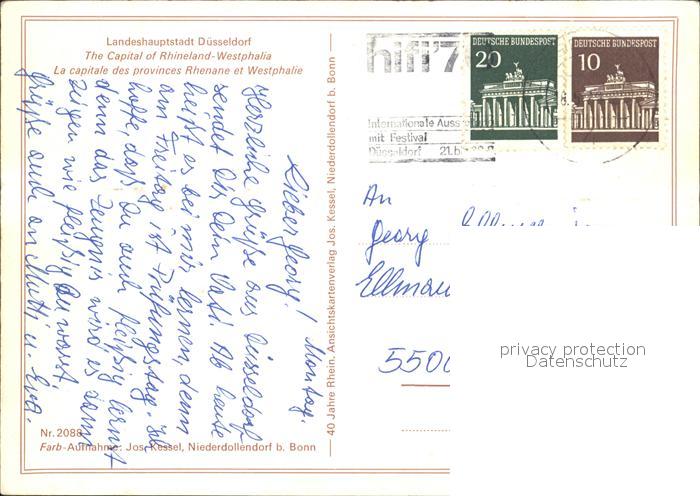 Landeshauptstadt Düsseldorf
The Capital of Rhineland-Westphalia
La capitale des provinces Rhenane et Westphalie
Montag.
Lieber Georg!
Herzliche Grüße aus Düsseldorf
sendet Dir Dein Vati. Ab heute
heißt es bei mir lernen, denn
am Freitag ist Prüfungstag. Ich
hoffe, daß Du auch fleißig lernst
denn das Zeugnis wird es dann
zeigen wie fleißig Du warst
Grüße auch an Mutti u. Eva.
Nr. 2088
Farb-Aufnahme: Jos. Kessel, Niederdollendorf b. Bonn
40 Jahre Rhein. Ansichtskartenverlag Jos. Kessel, Niederdollendorf b. Bonn
hifi'7
Internationale Auss
mit Festival
Düsseldorf 21.b
DEUTSCHE BUNDESPOST
20
DEUTSCHE BUNDESPOST
10
An
Georg
Ellmau
5500
privacy protection
Datenschutz